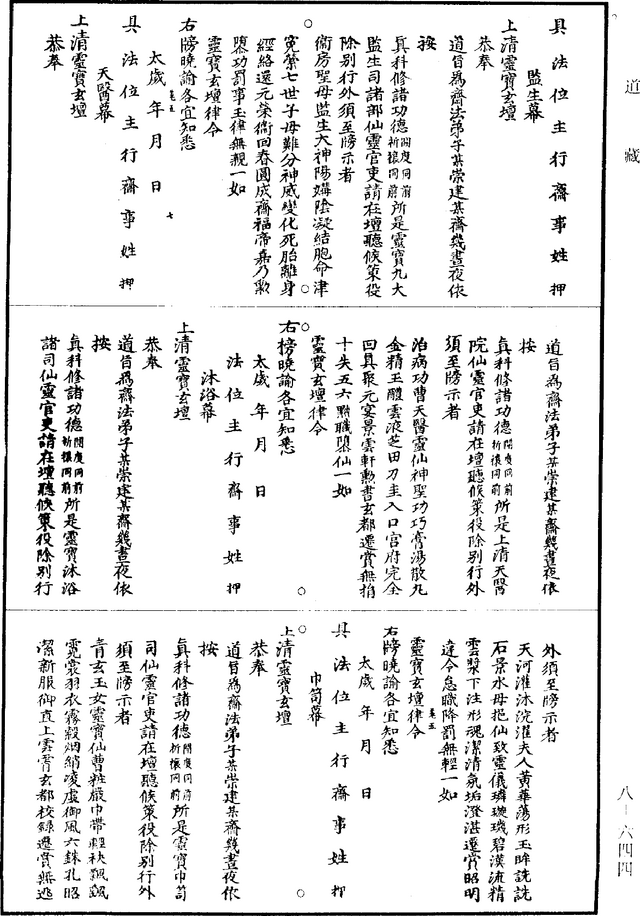 道藏
具法位主行齋事姓押
監生幕
上清靈寶玄壇
恭奉
道旨爲齋法弟子某崇建某齋幾晝夜依
按
真科修諸功德開度同前祈禳同前所是靈寶九天
監生司諸部仙靈官吏請在壇聽候策役
除別行外須至牓示者
衛房聖母監生大神陽媾陰凝結胞命津
寃縈七世子母難分神威變化死胎離身
經絡還元榮衛回春圓成齋福帝嘉乃勲
隳功罰事玉律無親一如
靈寶玄壇律令
右牓曉諭各宜知悉
太歲年月日
具法位主行齋事姓押
天醫幕
上清靈寶玄壇
恭奉
道旨爲齋法弟子某崇建某齋幾晝夜依
按
真科修諸功德開度同前祈禳同前所是上清天醫
院仙靈官吏請在壇聽候策役除別行外
須至牓示者
治病功曹天醫靈仙神聖功巧膏湯散丸
金精玉醴雲液芝田刀圭入口宫府完全
回真聚元宴景雲軒勲書玄都遷賞無捐
十失五六黜職隳仙一如
靈寶玄壇律令
右榜曉諭各宜知悉
太歲年月日
法位主行齋事姓押
沐浴幕
上清靈寶玄壇
恭奉
道旨爲齋法弟子某崇建某齋幾晝夜依
按
真科修諸功德開度同前祈禳同前所是靈寶沐浴
諸司仙靈官吏請在壇聽候策役除別行
外須至牓示者
天河灌沐浣濯夫人黄華蕩形玉眸詵詵
石景水母挹仙致靈儀璘璇璣碧漢流精
雲漿下注形魂潔清氛垢澄湛遷賞昭明
違令怠職降罰無輕一如
靈寶玄壇律令
右牓曉諭各宜知悉
太歲年月日
具法位主行齋事姓押
巾笥幕
上清靈寶玄壇
恭奉
道旨爲齋法弟子某崇建某齋幾晝夜依
按
真科修諸功德開度同前祈禳同前所是靈寶巾笥
司仙靈官吏請在壇聽候策役除別行外
須至牓示者
青玄玉女靈寶仙曹粧嚴巾帶輕袂飄飄
霓裳羽衣霧縠烟綃凌虛御風六銖孔昭
潔新服御直上雲霄玄都校録遷賞無逃
八－六四四